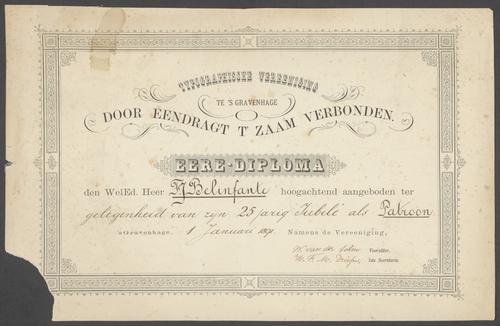 TYPOGRAPHISCHE VEREENIGING
TE 'S GRAVENHAGE
DOOR EENDRAGT T' ZAAM VERBONDEN.
EERE-DIPLOMA
den WelEd. Heer F.J. Belinfante hoogachtend aangeboden ter
gelegenheid van zyn 25 jarig Jubilé als Patroon
'sGravenhage, 1 Januari Namens de Vereeniging,
van der Voorzitter.
W. F. M. 1ste Secretaris